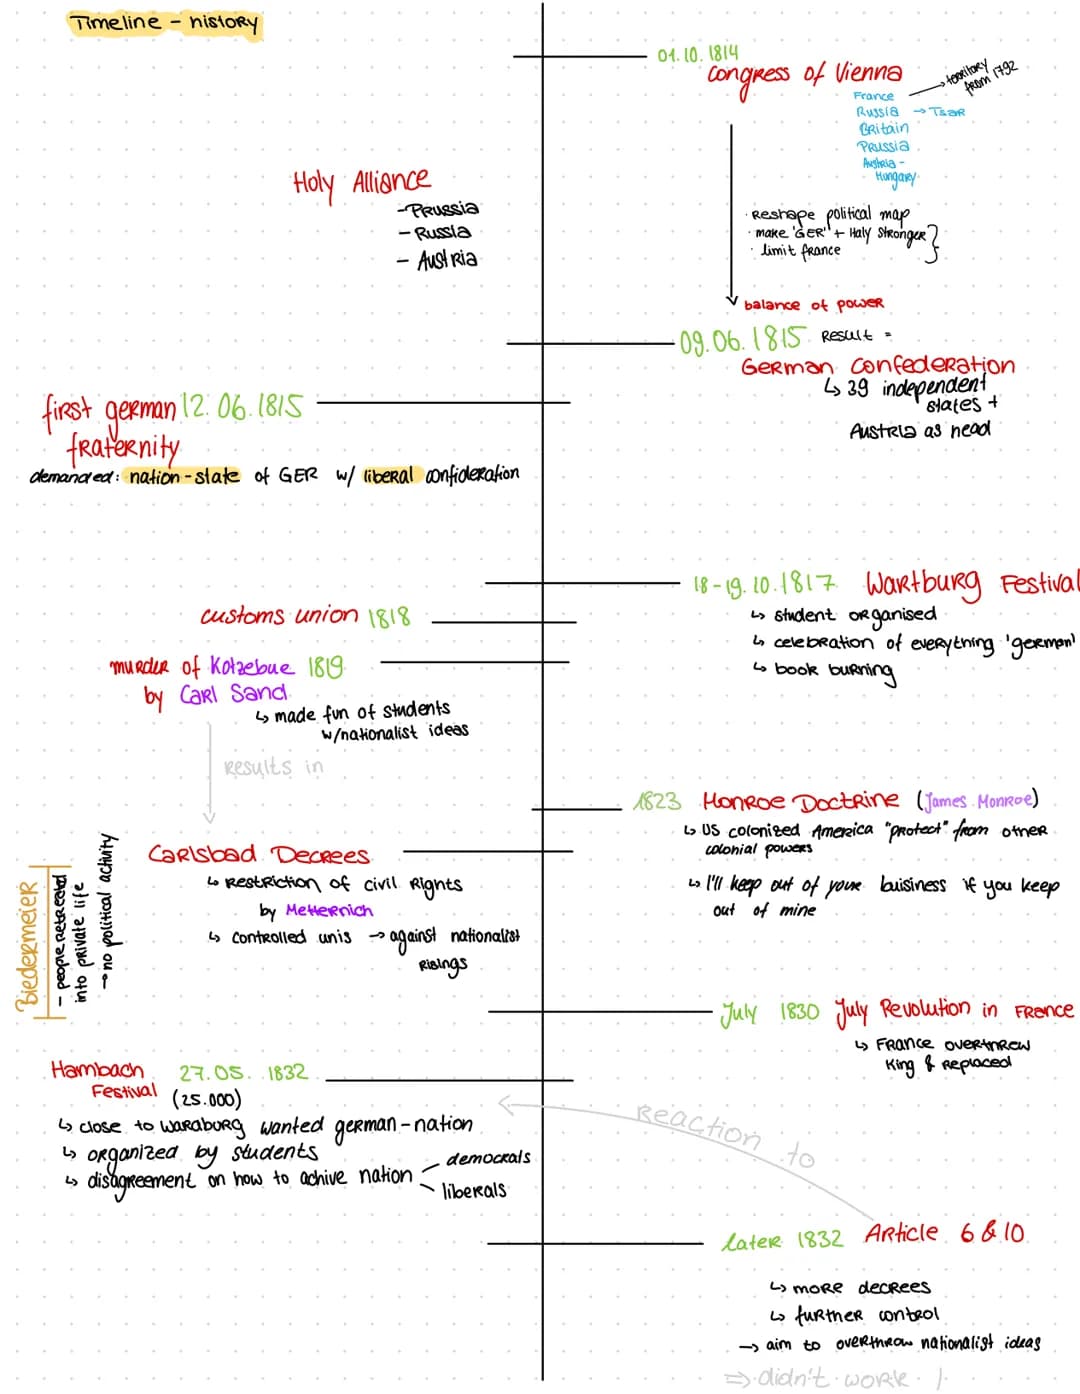 Timeline - history
01.10.1814
Congress of Vienna
→ territory
from 1792
France
Russia → Tsar
Britain
Prussia
Austria -
Hungary
Holy Alliance
- Prussia
- Russia
- Austria
· Reshape political map
· make 'GER' + Italy stronger }
· limit france
balance of power
09.06.1815 Result =
German Confederation
↳ 39 independent
states +
Austria as head
first german 12.06.1815
fraternity
demanded: nation-state of GER w/ liberal confideration
18-19.10.1817 Wartburg Festival
↳ student organised
↳ celebration of everything 'german'
↳ book burning
customs union 1818
murder of Kotzebue 1819
by Carl Sand
↳ made fun of students
w/nationalist ideas
results in
1823 Monroe Doctrine (James Monroe)
↳ US colonized America "protect" from other
colonial powers
↳ I'll keep out of your buisiness if you keep
out of mine
Carlsbad Decrees
↳ restriction of civil rights
by Metternich
↳ controlled unis → against nationalist
risings
Biedermeier
- people retreated
into private life
→ no political activity
July 1830 July Revolution in France
↳ France overthrew
king & replaced
Hambach 27.05.1832
Festival (25.000)
↳ close to Waraburg wanted german-nation
↳ organized by students
↳ disagreement on how to achive nation
democrals
liberals
Reaction to
later 1832 Article 6 & 10
↳ more decrees
↳ further control
→ aim to overthrow nationalist ideas
⇒ didn't work !